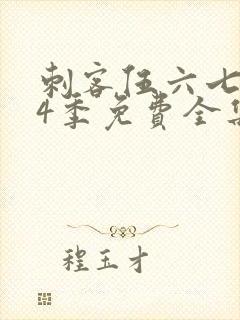 刺客伍六七
4季免费全集
程玉才